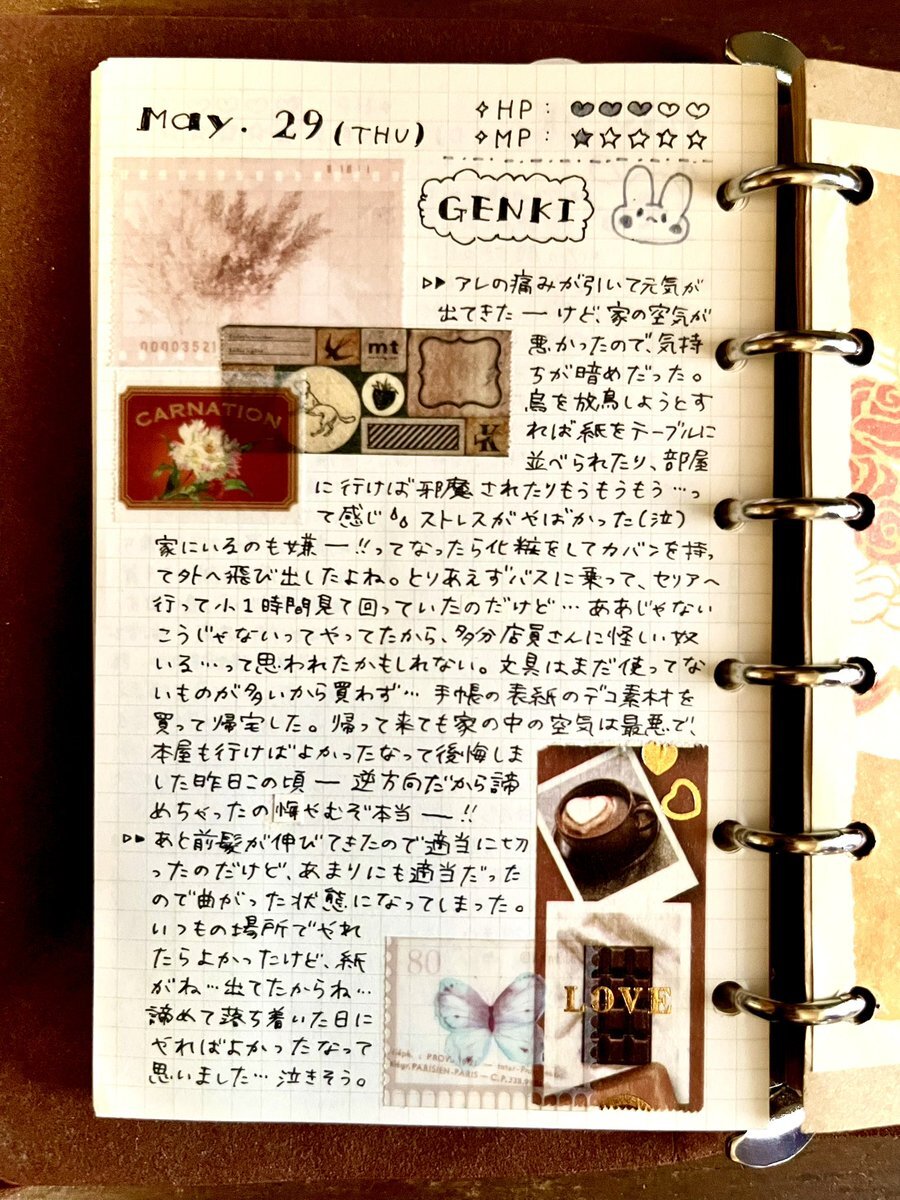 May. 29 (THU)
✧HP: ♥♥♥♡♡
✧MP: ★☆☆☆☆
GENKI
▷▶アレの痛みが引いて元気が
出てきたーけど、家の空気が
悪かったので、気持
ちが暗めだった。
鳥を放鳥しようとす
れば紙をテーブルに
並べられたり、部屋
に行けば邪魔されたりもうもうもう…っ
て感じ ストレスがやばかった(泣)
家にいるのも嫌ー!!ってなったら化粧をしてカバンを持っ
て外へ飛び出したよね。とりあえずバスに乗って、セリアへ
行って小1時間見て回っていたのだけど…ああじゃない
こうじゃないってやってたから、多分店員さんに怪しい奴
いる…って思われたかもしれない。文具はまだ使ってな
いものが多いから買わず…手帳の表紙のデコ素材を
買って帰宅した。帰って来ても家の中の空気は最悪で、
本屋も行けばよかったなって後悔しま
した昨日この頃ー逆方向だから諦
めちゃったの悔やむぞ本当ー!!
▷▶あと前髪が伸びてきたので適当に切
ったのだけど、あまりにも適当だった
ので曲がった状態になってしまった。
いつもの場所でやれ
たらよかったけど、紙
がね…出てたからね…
諦めて落ち着いた日に
やればよかったなって
思いました…泣きそう。
00003521
mt
CARNATION
K
80
PARISIEN-PARIS
LOVE